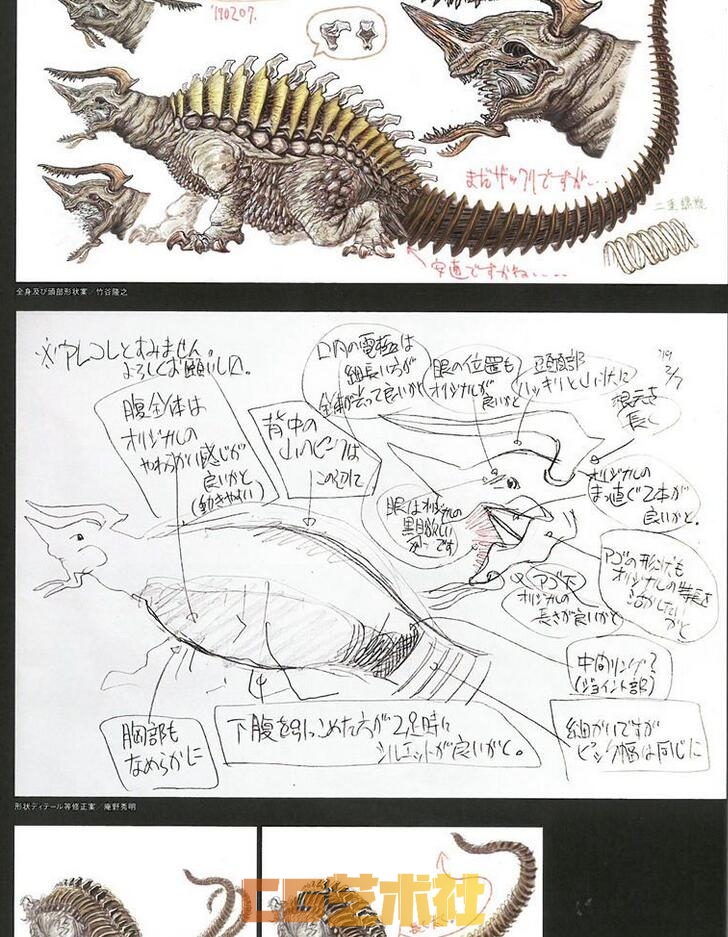 '190207.
まだザックリですが・・・
二重螺旋
字直ですかねい・・・・
全身及び頭部形状案/竹谷隆之
※アレコレとすみません。
よろしくお願いします。
口内の電極は
細長い方が
全体が尖って良いかと
眼の位置も
オリジナルが
良いかと
頭頂部
ハッキリと山状に
'19
2/7
根元を
長く
腹全体は
オリジナルの
やわらかい感じが
良いかと
(動きやすい)
背中の
山のピークは
このへんに
眼はオリジナルの
黒目欲しい
オリジナルの
まっ直ぐ2本が
良いかと。
アゴ下
オリジナルの
長さが良いかと
アゴの形状も
オリジナルの特長を
活かしたい
かと
中間リング?
(ジョイント部)
胸部も
なめらかに
下腹を引っこめた方が2足時に
シルエットが良いかと。
細かいですが
ピンク幅は同じに
形状ディテール等修正案/庵野秀明
CD艺术社